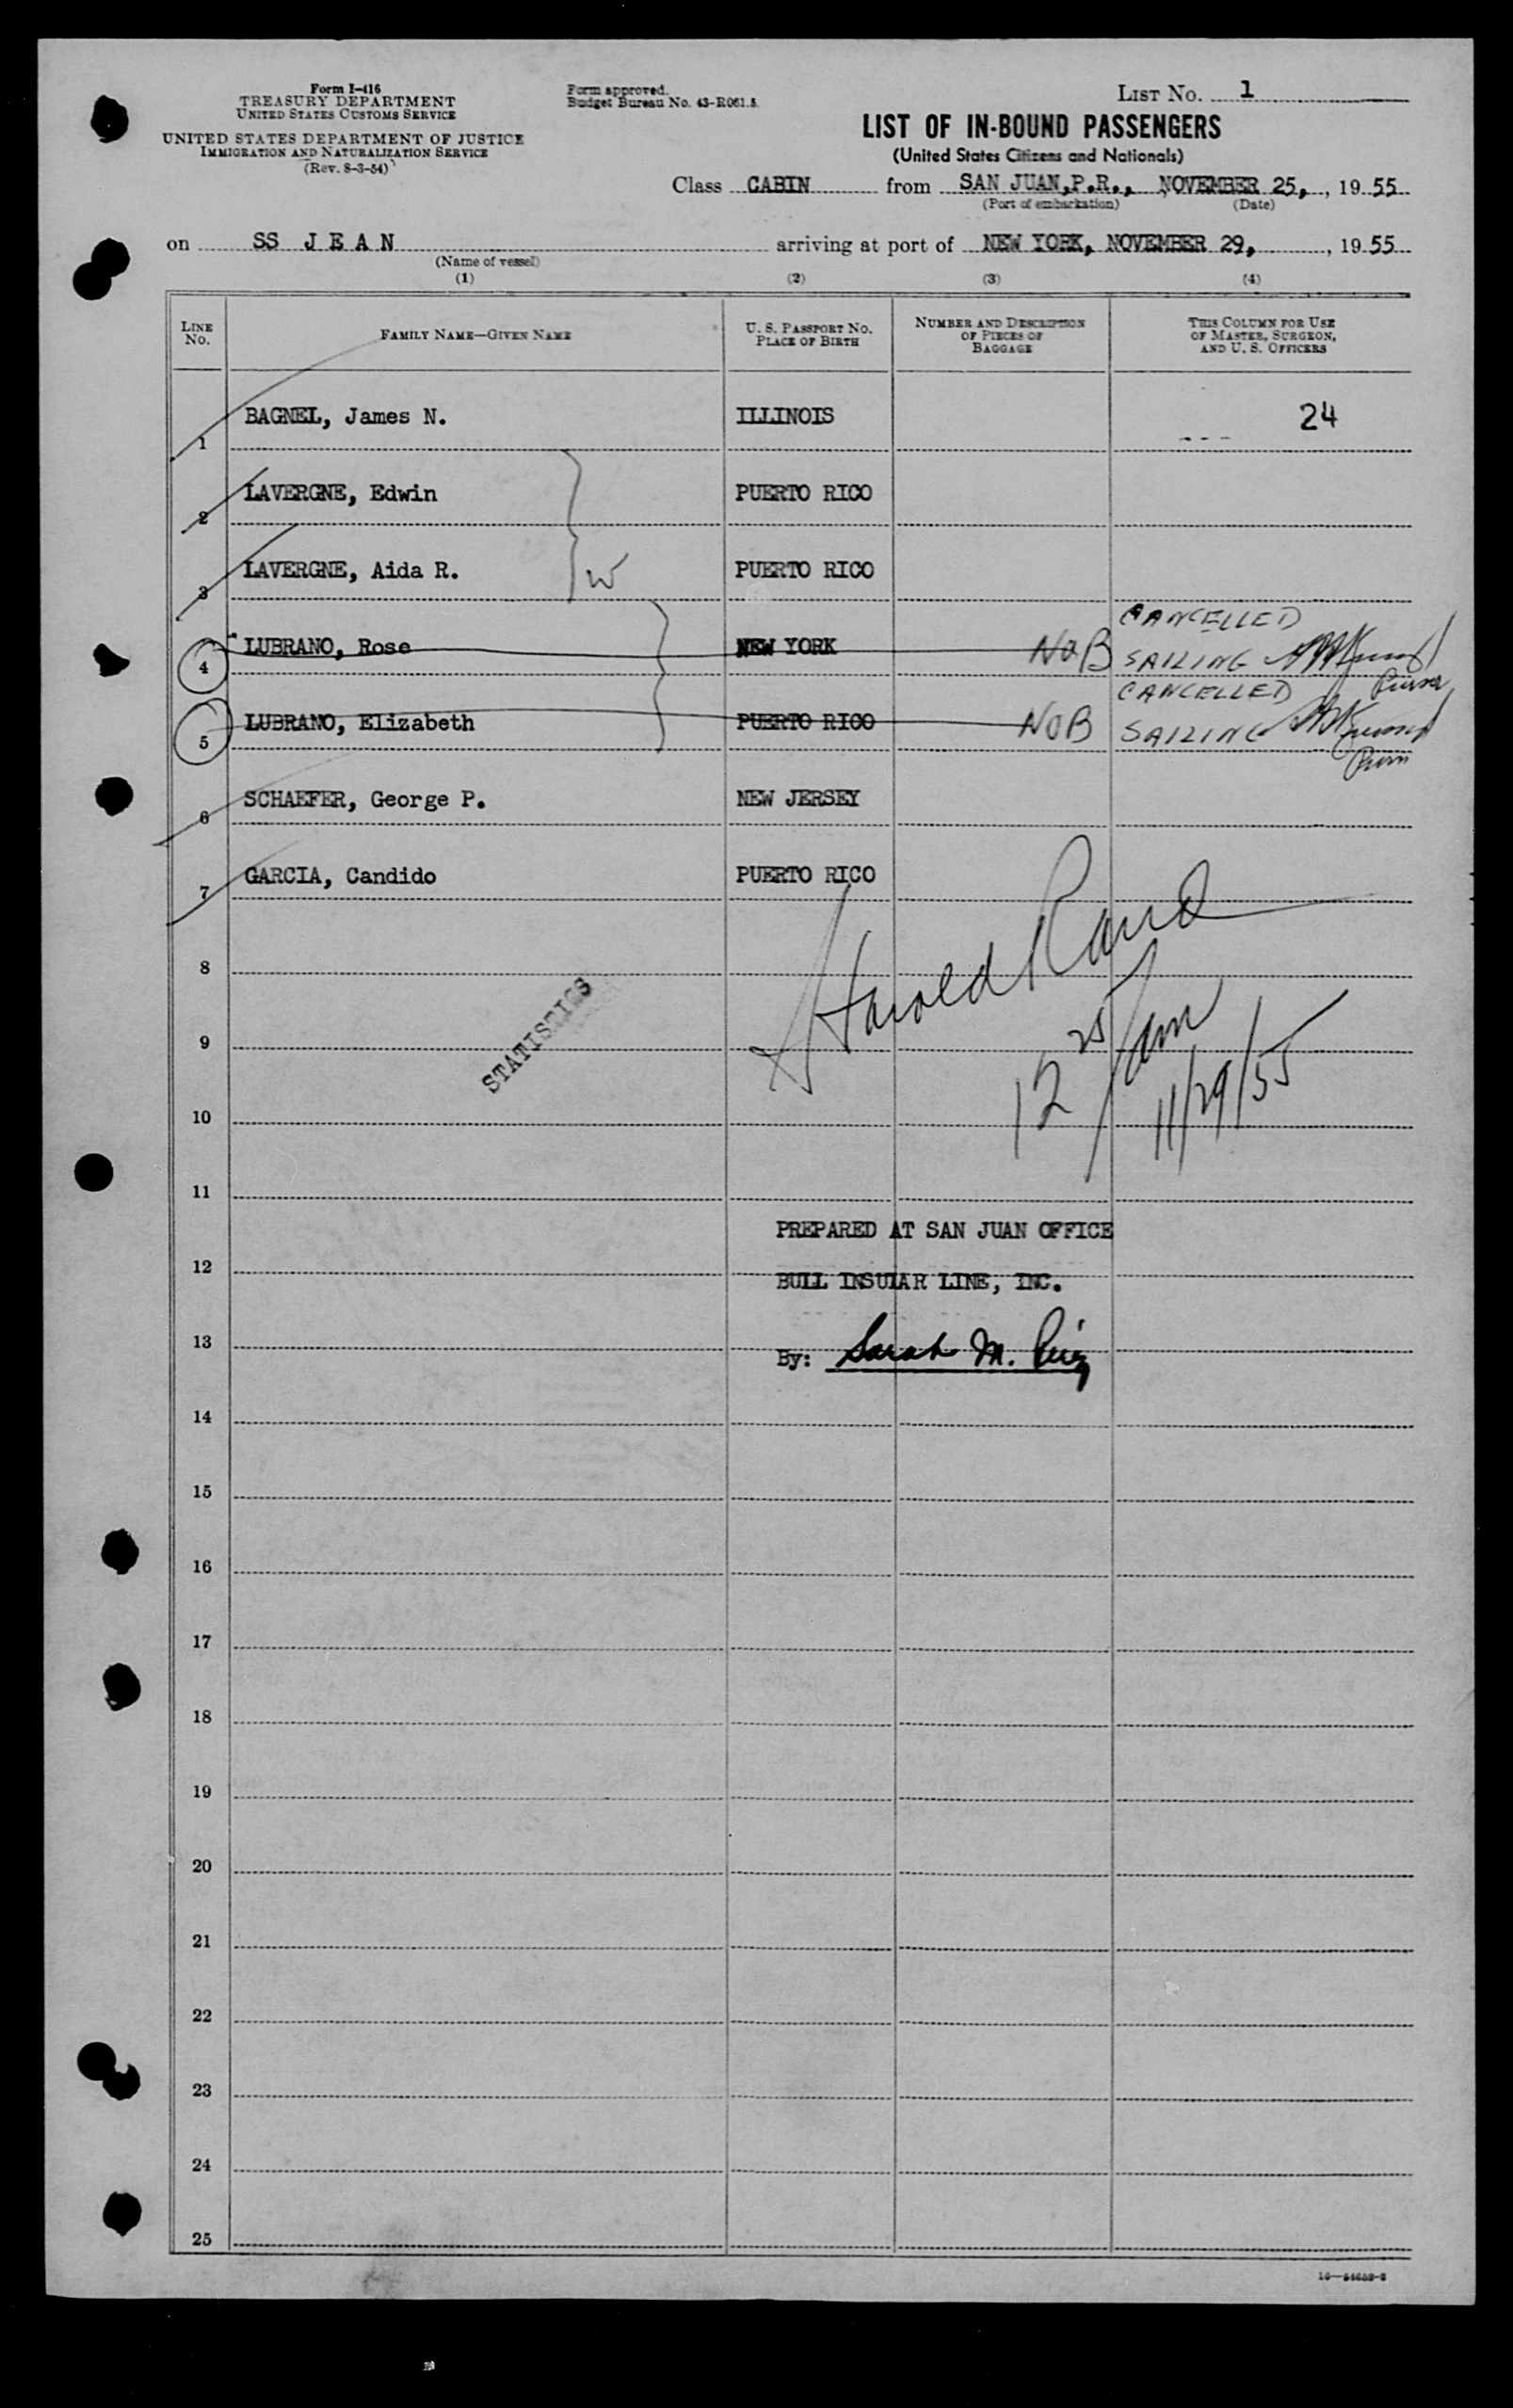 Form I-416
TREASURY DEPARTMENT
UNITED STATES CUSTOMS SERVICE
UNITED STATES DEPARTMENT OF JUSTICE
IMMIGRATION AND NATURALIZATION SERVICE
(Rev. 8-3-54)
Form approved.
Budget Bureau No. 43-R061.5.
LIST NO. 1
LIST OF IN-BOUND PASSENGERS
(United States Citizens and Nationals)
Class CABIN from SAN JUAN, P.R., NOVEMBER 25, , 19 55
(Port of embarkation) (Date)
on SS J E A N arriving at port of NEW YORK, NOVEMBER 29, , 19 55
(Name of vessel)
(1) (2) (3) (4)
LINE NO. FAMILY NAME—GIVEN NAME U. S. PASSPORT NO. PLACE OF BIRTH NUMBER AND DESCRIPTION OF PIECES OF BAGGAGE THIS COLUMN FOR USE OF MASTER, SURGEON, AND U. S. OFFICERS
1 BAGNEL, James N. ILLINOIS 24
2 LAVERGNE, Edwin PUERTO RICO
3 LAVERGNE, Aida R. W PUERTO RICO
CANCELLED
4 LUBRANO, Rose NEW YORK NOB SAILING
CANCELLED Purser
5 LUBRANO, Elizabeth PUERTO RICO NOB SAILING
6 SCHAEFER, George P. NEW JERSEY
7 GARCIA, Candido PUERTO RICO
Harold Rand
8
STATISTICS
9
12 25 am
11/29/55
10
11
PREPARED AT SAN JUAN OFFICE
12
BULL INSULAR LINE, INC.
13
By: Sarah M.
14
15
16
17
18
19
20
21
22
23
24
25